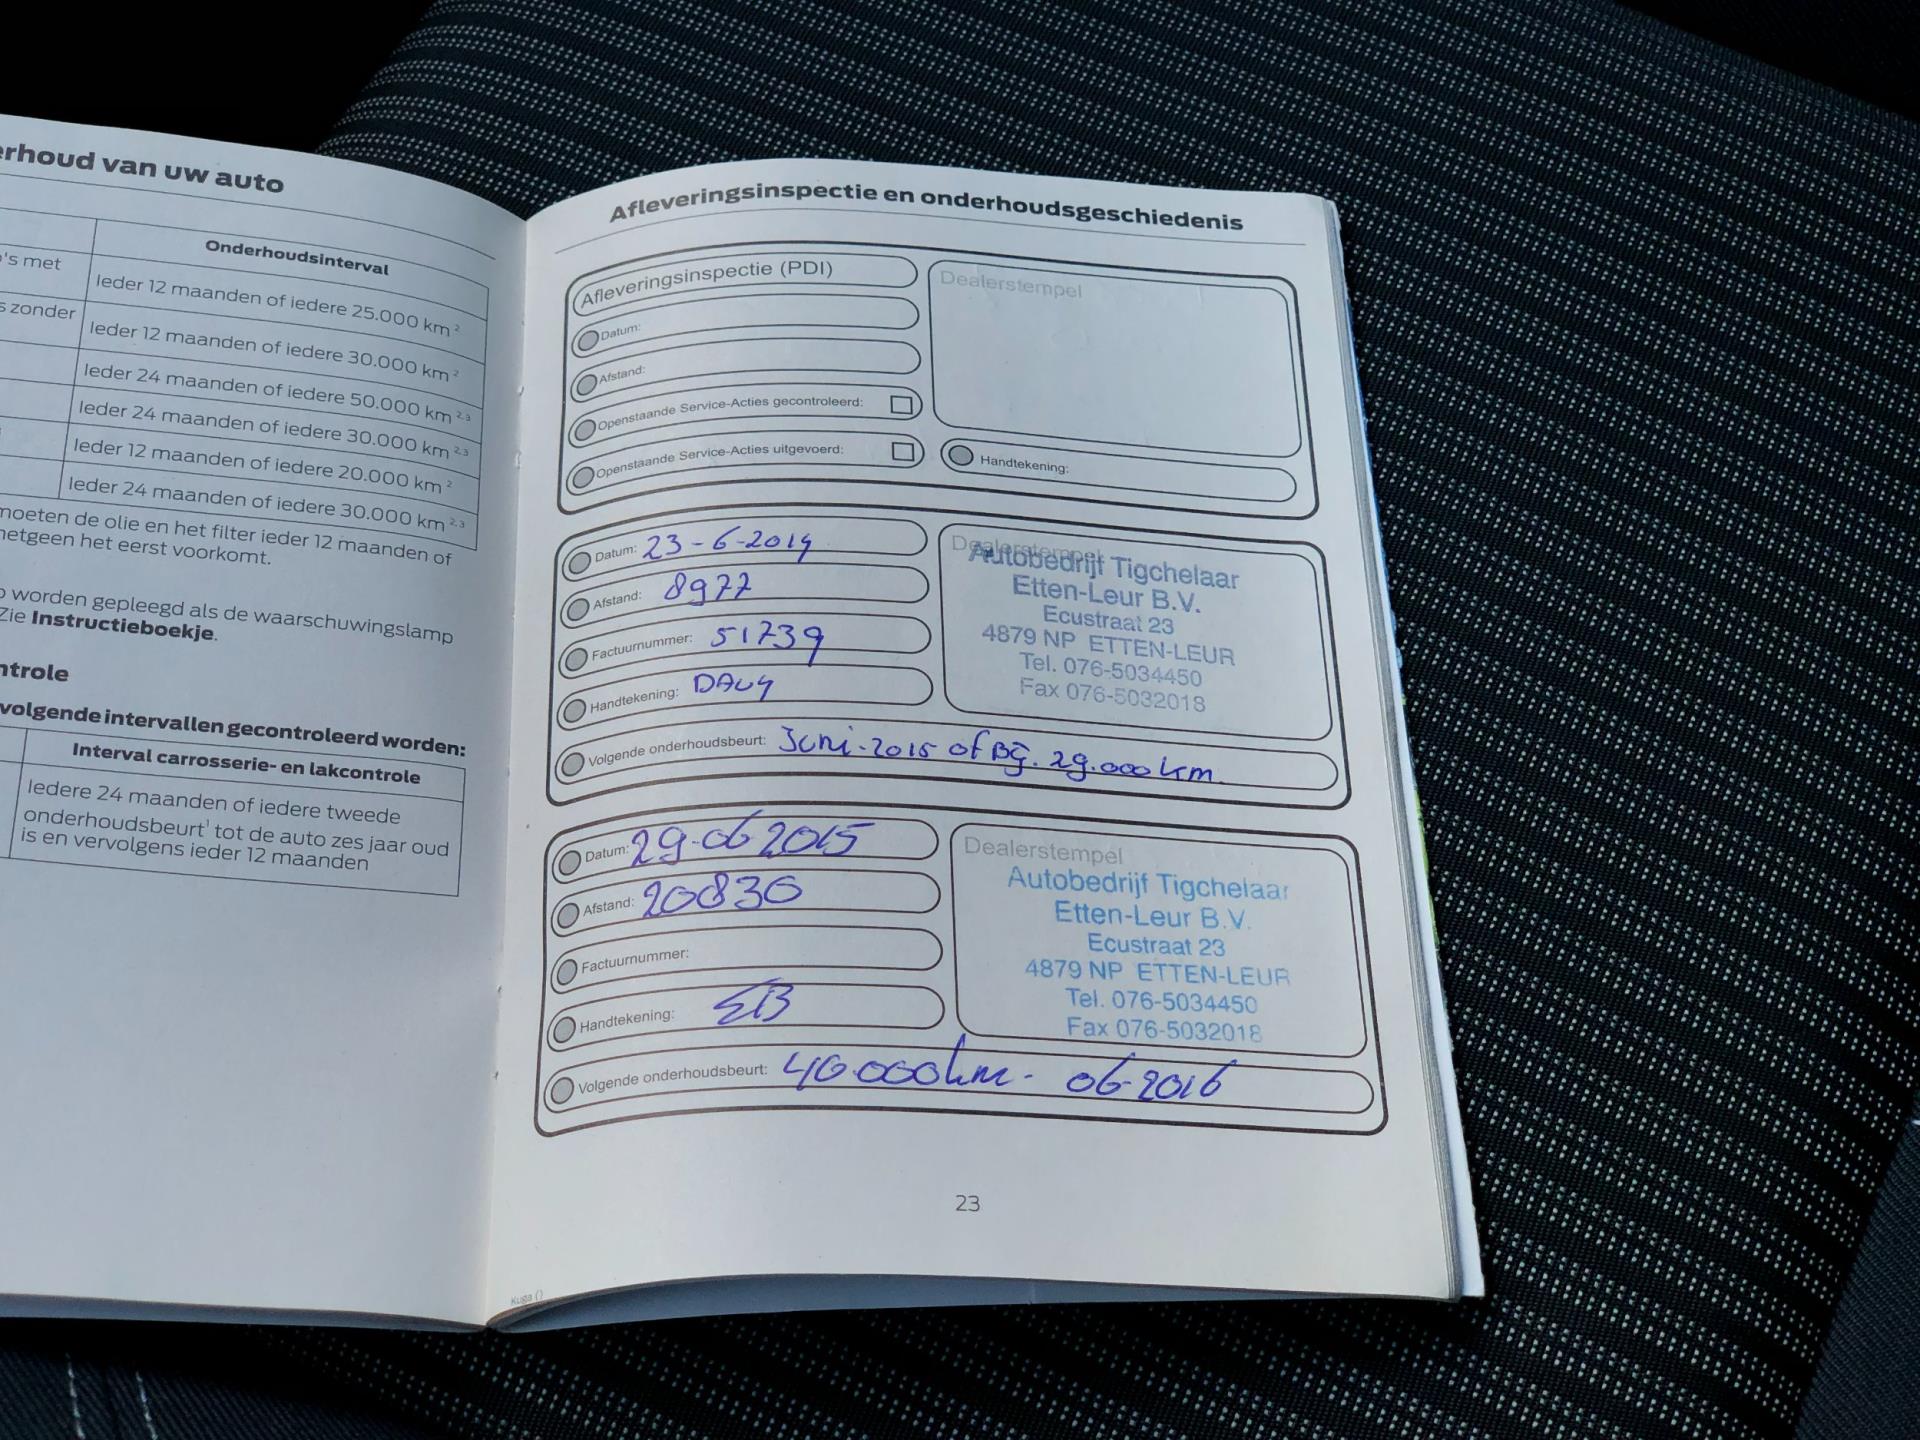 erhoud van uw auto
Onderhoudsinterval
's met
Ieder 12 maanden of iedere 25.000 km ²
s zonder
Ieder 12 maanden of iedere 30.000 km ²
Ieder 24 maanden of iedere 50.000 km ²,³
Ieder 24 maanden of iedere 30.000 km ²,³
Ieder 12 maanden of iedere 20.000 km ²
Ieder 24 maanden of iedere 30.000 km ²,³
moeten de olie en het filter ieder 12 maanden of
hetgeen het eerst voorkomt.
worden gepleegd als de waarschuwingslamp
Zie Instructieboekje.
ntrole
volgende intervallen gecontroleerd worden:
Interval carrosserie- en lakcontrole
Iedere 24 maanden of iedere tweede
onderhoudsbeurt¹ tot de auto zes jaar oud
is en vervolgens ieder 12 maanden
Afleveringsinspectie en onderhoudsgeschiedenis
Afleveringsinspectie (PDI)
Datum:
Afstand:
Openstaande Service-Acties gecontroleerd:
Openstaande Service-Acties uitgevoerd:
Dealerstempel
Handtekening:
Datum: 23-6-2014
Afstand: 8977
Factuurnummer: 51739
Handtekening: DAVY
Dealerstempel
Autobedrijf Tigchelaar
Etten-Leur B.V.
Ecustraat 23
4879 NP ETTEN-LEUR
Tel. 076-5034450
Fax 076-5032018
Volgende onderhoudsbeurt: Juni-2015 of Bij. 29.000 km.
Datum: 29-06 2015
Afstand: 20830
Factuurnummer:
Handtekening:
Dealerstempel
Autobedrijf Tigchelaar
Etten-Leur B.V.
Ecustraat 23
4879 NP ETTEN-LEUR
Tel. 076-5034450
Fax 076-5032018
Volgende onderhoudsbeurt: 40.000km - 06-2016
23
Kuga ()